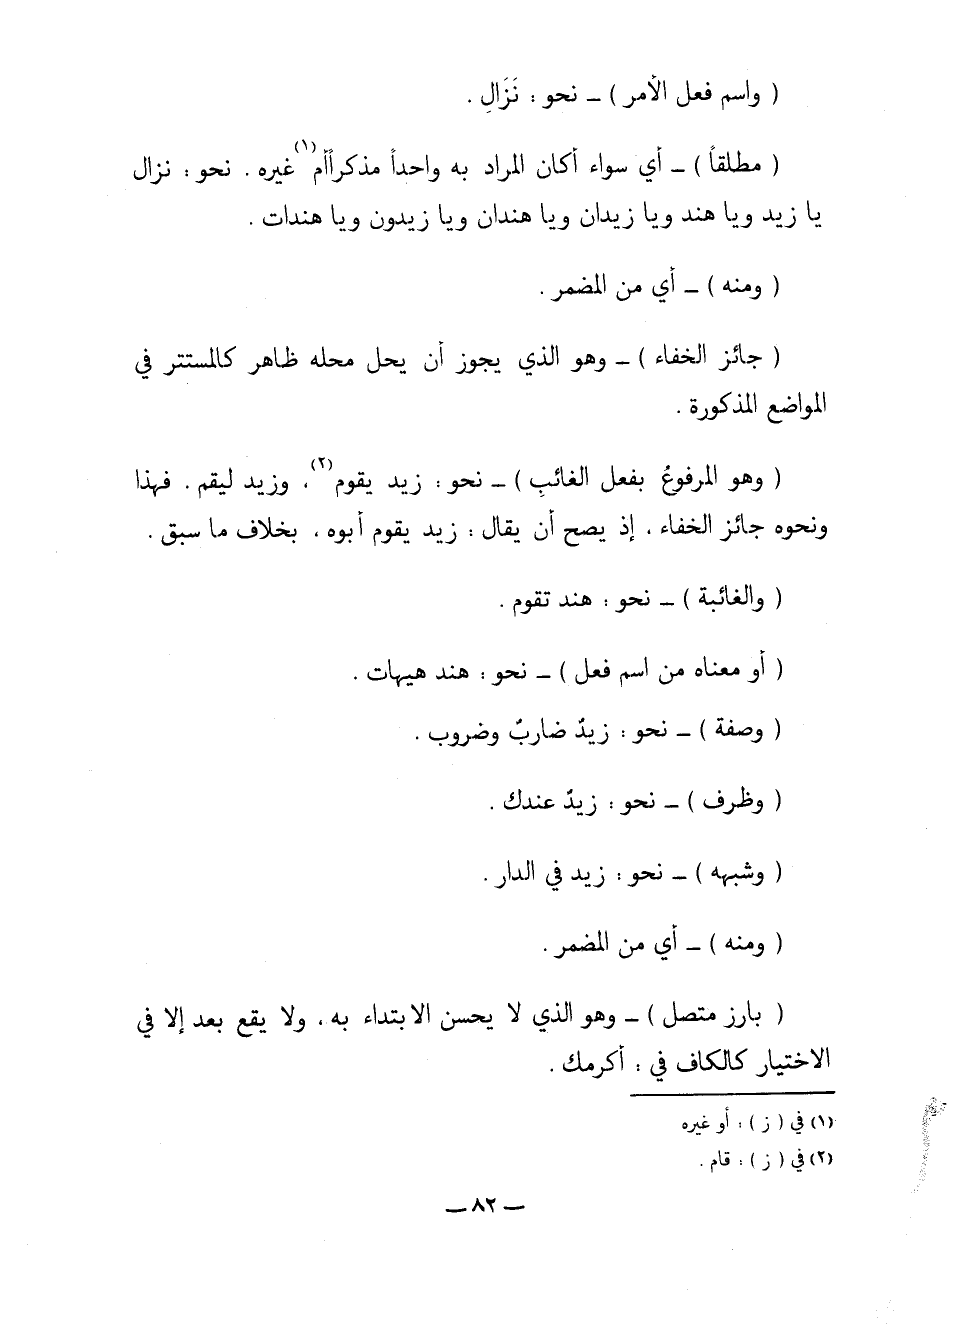 ( واسم فعل الأمر ) ــ نحو : نَزَالِ .
( مطلقاً ) ــ أي سواء أكان المراد به واحداً مذكراً أم(١) غيره . نحو : نزال
يا زيد ويا هند ويا زيدان ويا هندان ويا زيدون ويا هندات .
( ومنه ) ــ أي من المضمر .
( جائز الخفاء ) ــ وهو الذي يجوز أن يحل محله ظاهر كالمستتر في
المواضع المذكورة .
( وهو المرفوعُ بفعل الغائبِ ) ــ نحو : زيد يقوم(٢) ، وزيد ليقم . فهذا
ونحوه جائز الخفاء ، إذ يصح أن يقال : زيد يقوم أبوه ، بخلاف ما سبق .
( والغائبة ) ــ نحو : هند تقوم .
( أو معناه من اسم فعل ) ــ نحو : هند هيهات .
( وصفة ) ــ نحو : زيدٌ ضاربٌ وضروب .
( وظرف ) ــ نحو : زيدٌ عندك .
( وشبهه ) ــ نحو : زيد في الدار .
( ومنه ) ــ أي من المضمر .
( بارز متصل ) ــ وهو الذي لا يحسن الابتداء به ، ولا يقع بعد إلا في
الاختيار كالكاف في : أكرمك .
(١) في ( ز ) : أو غيره
(٢) في ( ز ) : قام .
ــ ٨٢ ــ